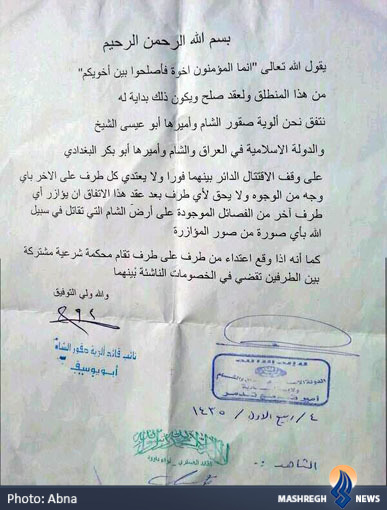 بسم الله الرحمن الرحيم
يقول الله تعالى "انما المؤمنون اخوة فأصلحوا بين أخويكم"
من هذا المنطلق ولعقد صلح ويكون ذلك بداية له
نتفق نحن ألوية صقور الشام وأميرها أبو عيسى الشيخ
والدولة الاسلامية في العراق والشام وأميرها أبو بكر البغدادي
على وقف الاقتتال الدائر بينهما فورا ولا يعتدي كل طرف على الاخر باي
وجه من الوجوه ولا يحق لأي طرف بعد عقد هذا الاتفاق ان يؤازر أي
طرف آخر من الفصائل الموجودة على أرض الشام التي تقاتل في سبيل
الله بأي صورة من صور المؤازرة
كما أنه اذا وقع اعتداء من طرف على طرف تقام محكمة شرعية مشتركة
بين الطرفين تقضي في الخصومات الناشئة بينهما
والله ولي التوفيق
نائب قائد ألوية صقور الشام
أبو يوسف
٤ / ربيع الاول / ١٤٣٥
الشاهد :-
Photo: Abna
MASHREGH NEWS